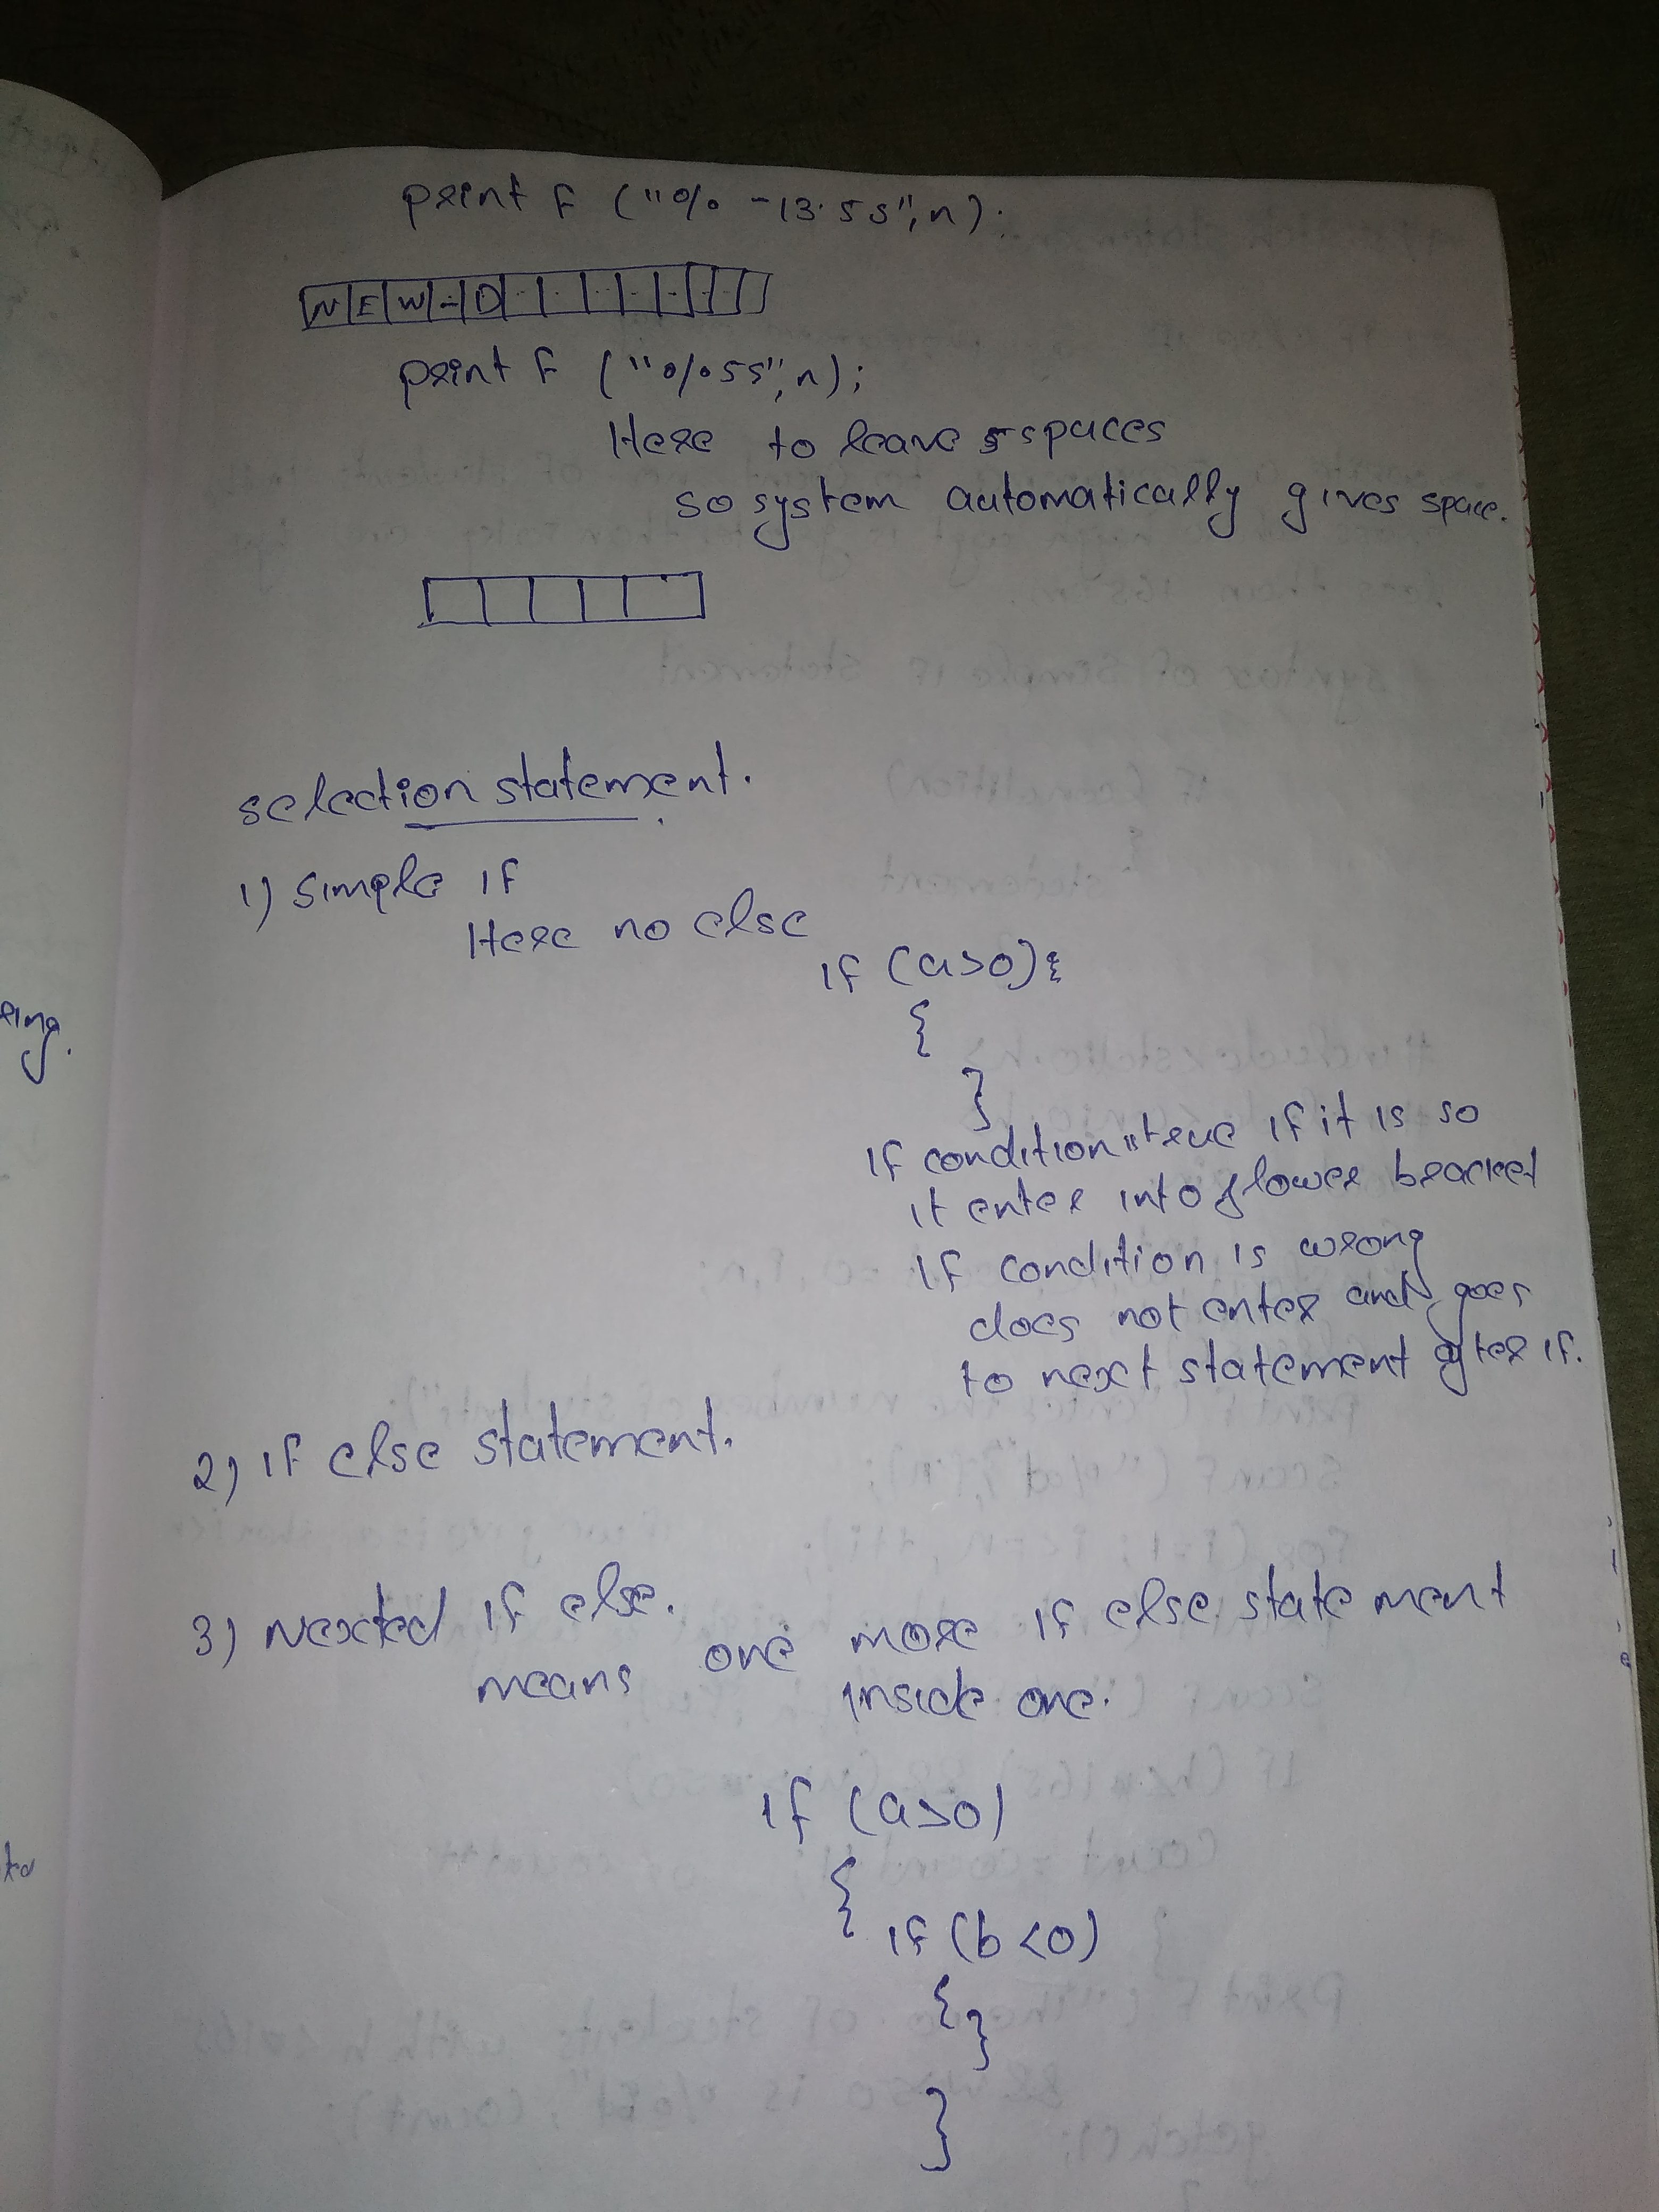 printf ("% -13.5s",n);
NEW-D
printf ("%5s",n);
Here to leave 5 spaces
so system automatically gives space.
selection statement.
1) simple if
Here no else
if (a>0);
{
}
if condition true if it is so
it enter into flower bracket
if condition is wrong
does not enter and goes
to next statement after if.
2) if else statement.
3) Nexted if else.
means one more if else statement
inside one.
if (a>0)
{
if (b<0)
{
}
}
eing.
to